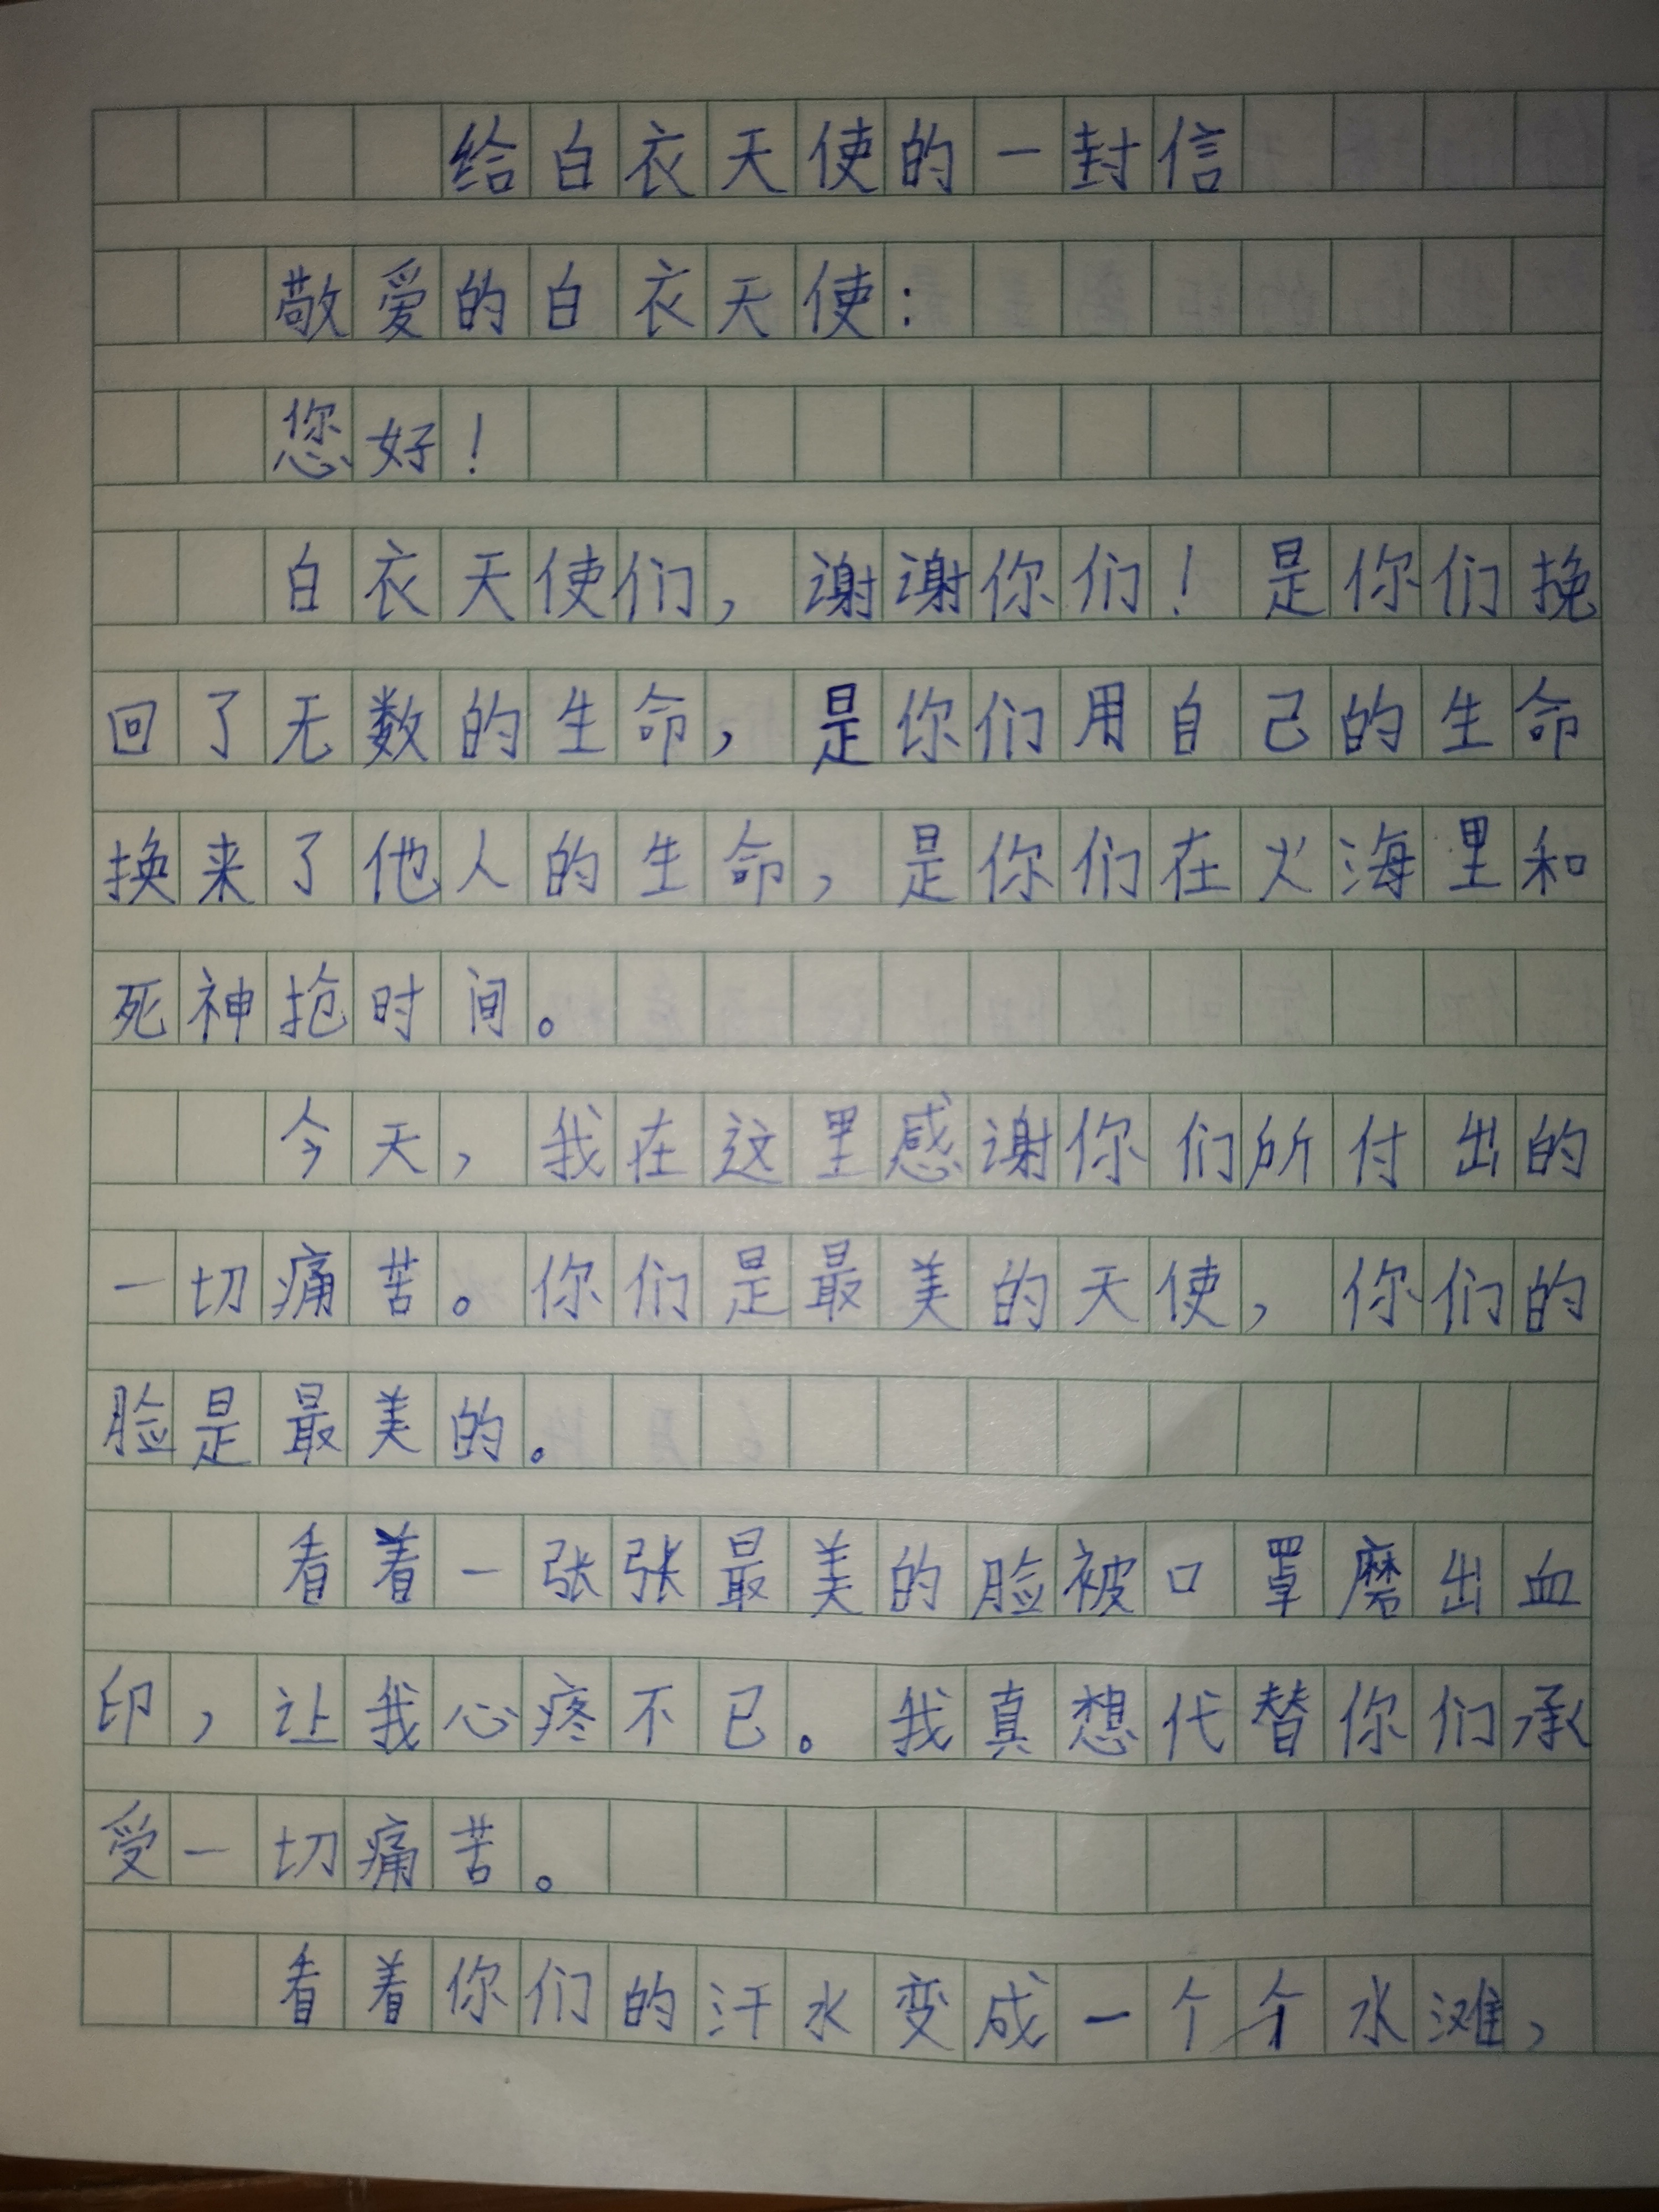 给白衣天使的一封信
敬爱的白衣天使:
您好!
白衣天使们,谢谢你们!是你们挽
回了无数的生命,是你们用自己的生命
换来了他人的生命,是你们在火海里和
死神抢时间。
今天,我在这里感谢你们所付出的
一切痛苦。你们是最美的天使,你们的
脸是最美的。
看着一张张最美的脸被口罩磨出血
印,让我心疼不已。我真想代替你们承
受一切痛苦。
看着你们的汗水变成一个个水滩,